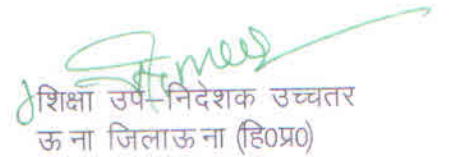 शिक्षा उप–निदेशक उच्चतर
ऊ ना जिलाऊ ना (हि0प्र0)